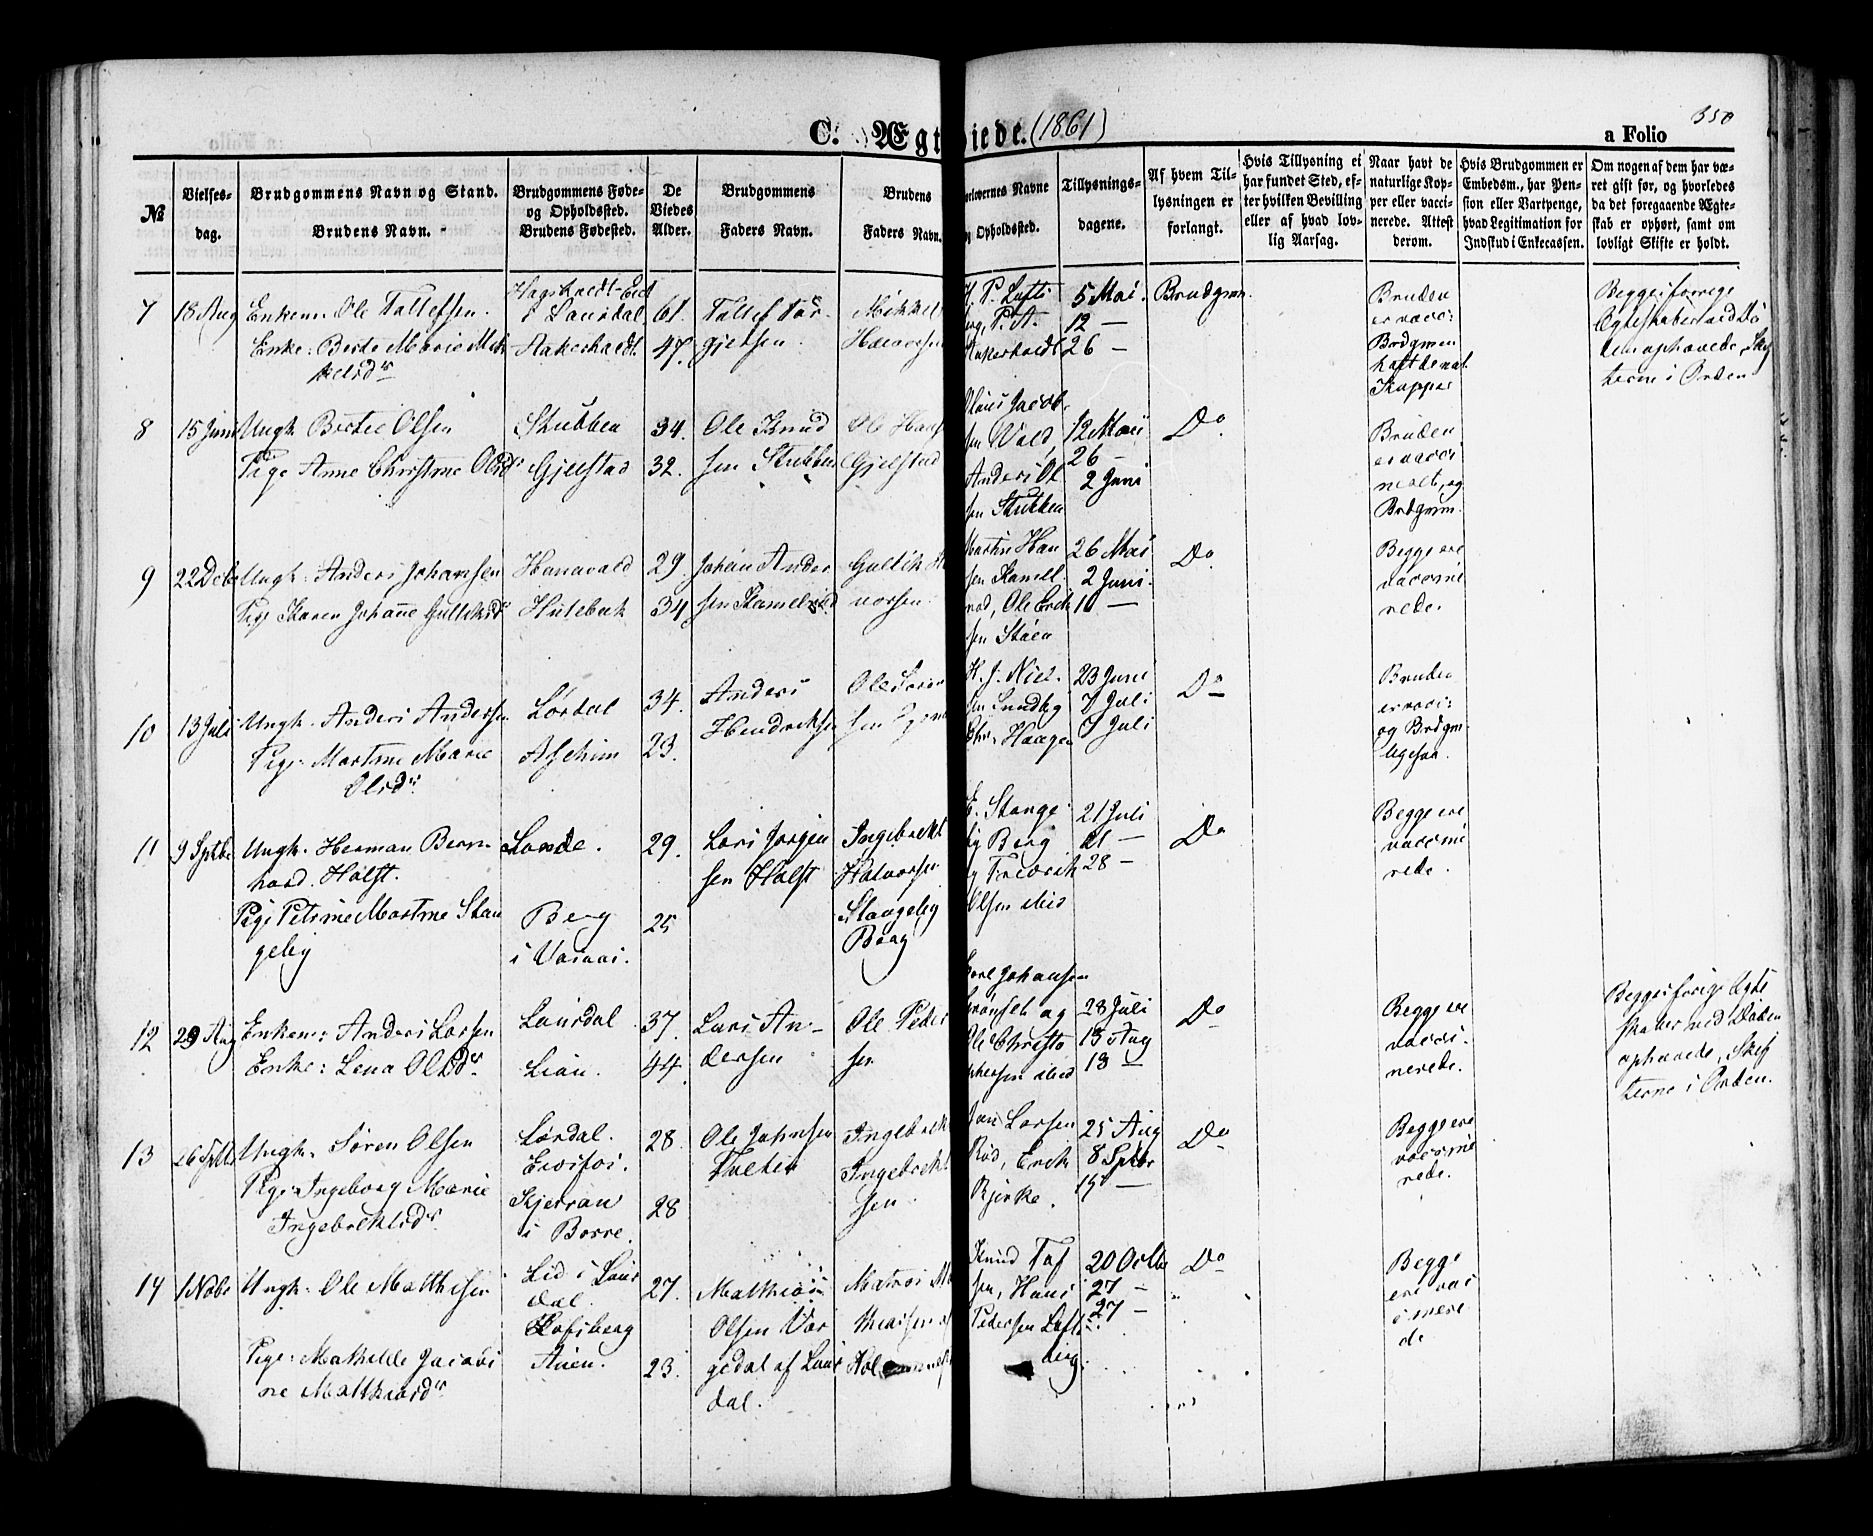 C. Ægt viede. (1861)
a Folio
350
№
Vielses-
dag.
Brudgommens Navn og Stand.
Brudens Navn.
Brudgommens Føde-
og Opholdssted.
Brudens Fødested.
De
Viedes
Alder.
Brudgommens
Faders Navn.
Brudens
Faders Navn.
orlovernes Navne
og Opholdssted.
Tillysnings-
dagene.
Af hvem Til-
lysningen er
forlangt.
Hvis Tillysning ei
har fundet Sted, ef-
ter hvilken Bevilling
eller af hvad lov-
lig Aarsag.
Naar havt de
naturlige Kop-
per eller vacci-
nerede. Attest
derom.
Hvis Brudgommen er
Embedsm., har Pen-
sion eller Vartpenge,
hvad Legitimation for
Indskud i Enkecassen.
Om nogen af dem har væ-
ret gift før, og hvorledes
da det foregaaende Ægte-
skab er ophørt, samt om
lovligt Skifte er holdt.
7 18 Aug Enkem: Ole Tallefsen.
Enke: Berte Marie Mik
kelsdr
i Laurdal
61.
47.
Tallef Tor-
gjelsen.
Mikkel
H. P. Lefts
berg, P. A.
5 Mai.
12 —
26 —
Brudgm.
Bruden
er vacc:
Brdgmen
haft de nat.
Kopper
Begge i forrige
Egteskaber ved Dø
den ophævede, Skif
terne i Orden
8 15 Juni Ungk. Bertel Olsen
Pige Anne Christine Olsdr
Stubben
Gjelstad
34.
32.
Ole Knud
sen Stubben
Ole Hans
Gjelstad
Jacob-
sen Vold,
Anders Ol
sen Stubben
12 Mai
26 —
2 Juni
Do
Bruden
er vacci
neret, og
Brdgmm.
9 22 Dcb Ungk: Anders Johansen
Pige Karen Johanne Gulliksdr
Hanevold
Hulebak
29.
34.
Johan Ander
sen
Gullik H
vorsen.
Martin Han
sen
rød, Ole Erik
sen Støen
26 Mai
2 Juni.
10 —
Do
Begge ere
vaccine
rede.
10 13 Juli Ungk. Anders Andersen
Pige: Martine Marie
Olsdr
Lørdal
Askim
34.
23.
Anders
Hendriksen
Ole Søren
sen
H. J. Niel-
sen Sundby
Chr. Haagen
23 Juni
7 Juli
7 Juli
Do
Bruden
er vacc:
og Brdgm
ligesaa.
11 9 Sptbr Ungk. Herman Bern
hard. Holst.
Pige Petrine Martine Stan
geby
Lande.
Berg
i
29.
25
Lars Jørgen
sen Holst
Ingebrekt
Halvorsen
Stangeby
Berg
E. Stange
by Berg
og Fredrik
Olsen ibid
21 Juli
21 —
28 —
Do
Begge ere
vaccine
rede.
12 29 Aug Enkem: Anders Larsen
Enke: Lena Olsdr
Laurdal
Lian.
37.
44.
Lars An-
dersen
Ole Peder
sen
Carl Johansen
Grønset og
Ole Christo
phersen ibid
28 Juli
13 Aug
18 —
Do
Begge ere
vacci-
nerede.
Begges forrige Egte
skaber ved Døden
ophævede, Skif
terne i Orden.
13 26 Sptbr Ungk. Søren Olsen
Pige: Ingeborg Marie
Ingebrektsdr
Lørdal.
Kjerran
i Borre.
28.
28
Ole Johnsen
Tveten
Ingebrek
Ingebrekt
sen
Larsen
Rød, Erik
Bjerke.
25 Aug
8 Sptbr
15 —
Do
Begge ere
vaccine
rede.
14 1 Nobr Ungk: Ole Mathisen
Pige: Mathilde Jacobi
ne Mathiasdr
Lid i Laur
dal.
Auen.
27.
23.
Mathias
Olsen Vor
gedal af Laur
dal.
Mathias Ma
thiassen af
Hol
Knud Tof
sen, Hans
Pedersen Lefts
berg.
20 Octbr
27 —
27 —
Do
Begge
ere vac
cinere
de